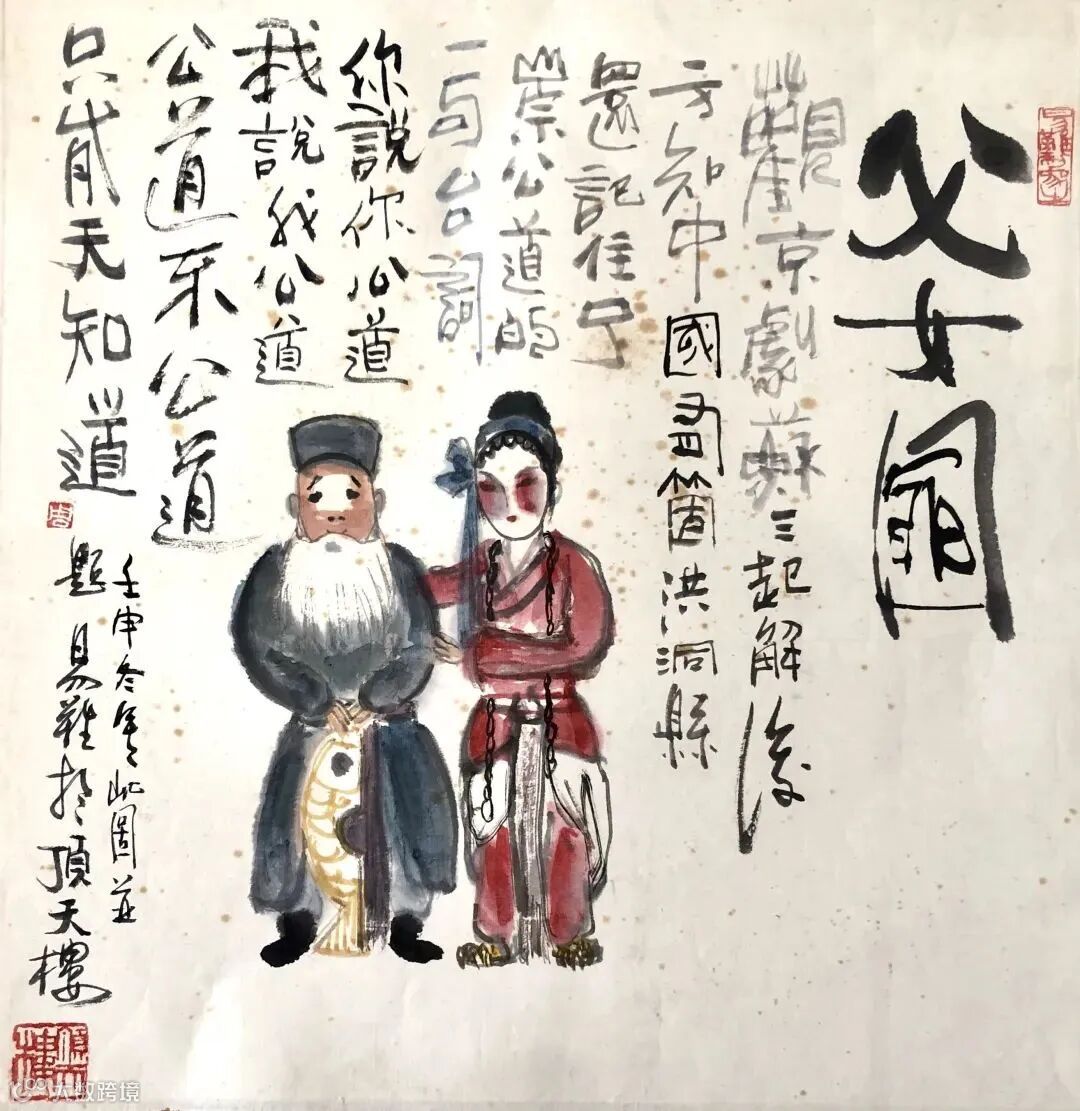 父女圖
觀京劇蘇三起解後
方知中國有箇洪洞縣
還記住了
崇公道的
一句台詞
你說你公道
我說我公道
公道不公道
只有天知道
壬申冬寫此圖並
題易難於頂天樓
大数跨境